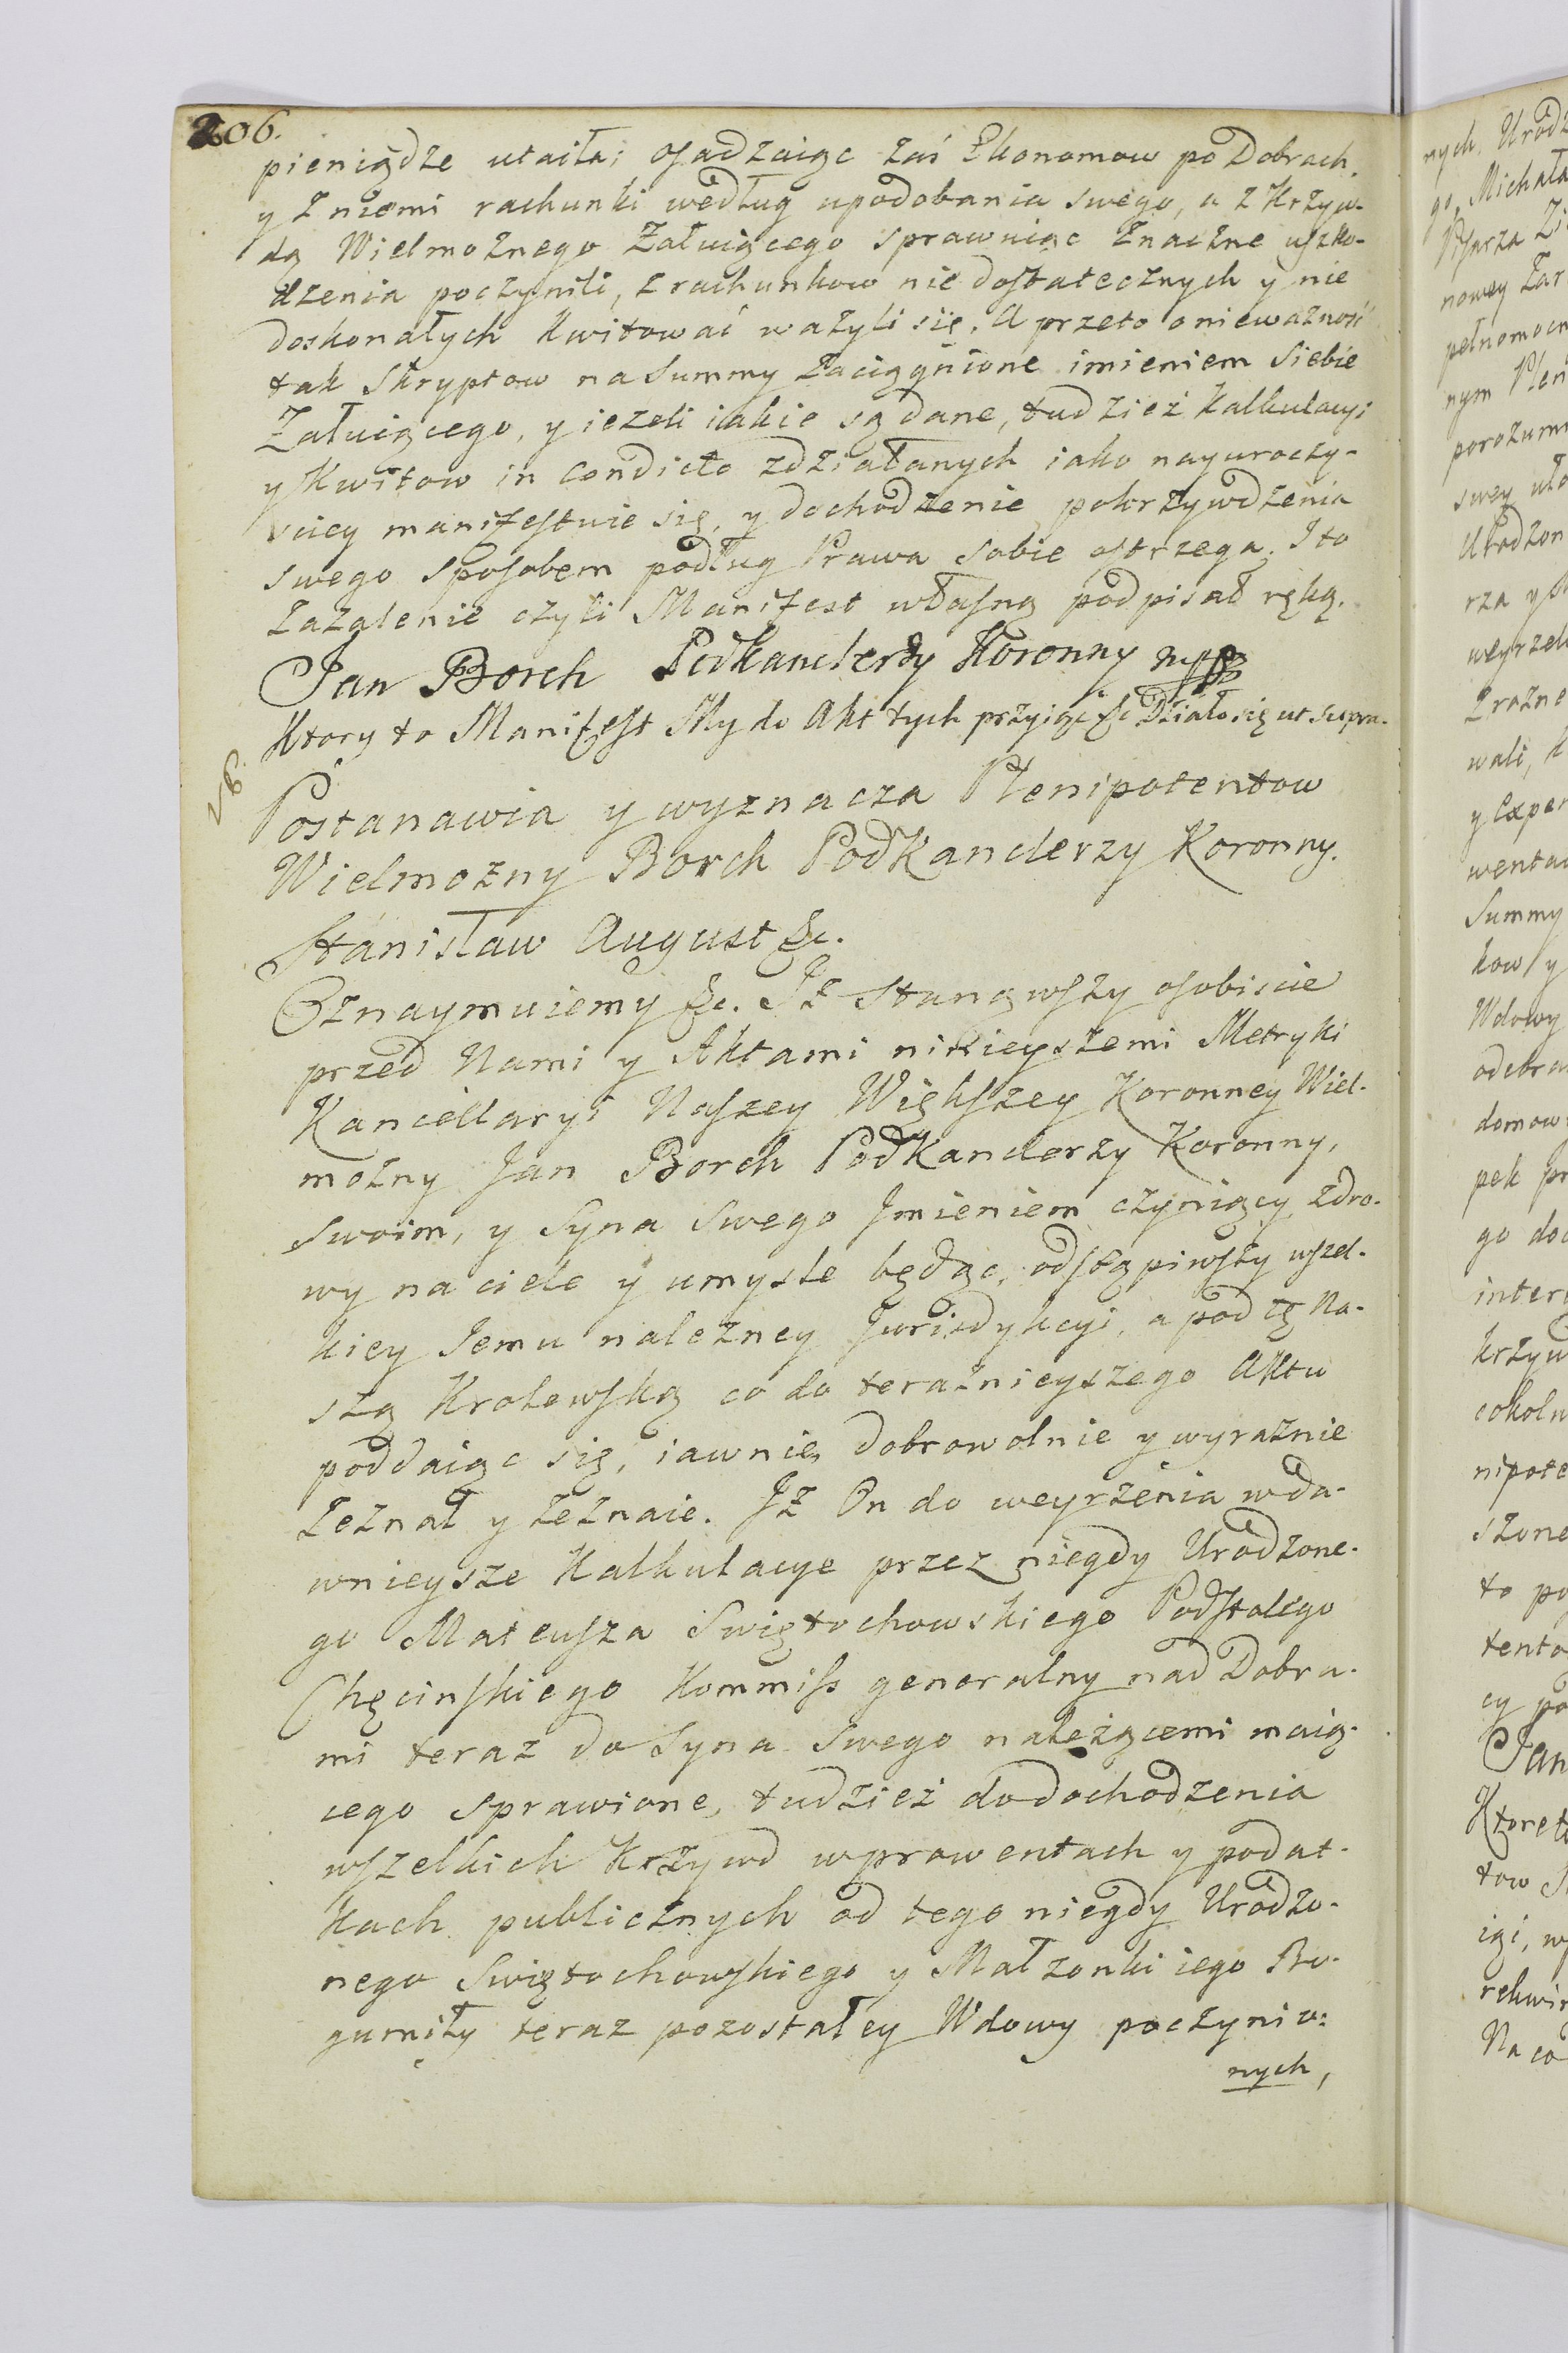 206.
pieniądze utaiła; osadzaiąc zaś Ekonomow po Dobrach,
y z niemi rachunki według upodobania swego, a z Krzyw-
dą Wielmożnego Załuiącego sprawuiąc znaczne uszko-
dzenia poczynili, z rachunkow nie dostatecznych y nie
doskonałych kwitować ważyli się. A przeto o nieważność
tak Skryptow na Summy zaciągnione imieniem Siebie
Załuiącego, y ieżeli iakie są dane, tudzież Kalkulacyi
y Kwitow in condicto zdziałanych iako nayuroczy-
sciey manifestuie się, y dochodzenie pokrzywdzenia
swego sposobem podług Prawa sobie ostrzega. I to
Zażalenie czyli Manifest własną podpisał ręką.
Jan Borch Podkanclerzy Koronny mpp
Ktory to Manifest My do Akt tych przyiąć &c Działo się ut supra.
NB.
Postanawia y wyznacza Plenipotentow
Wielmożny Borch PodKanclerzy Koronny.
Stanisław August &c.
Oznaymuiemy &c. Iż stanąwszy osobiscie
przed Nami y Aktami ninieyszemi Metryki
Kancellaryi Naszey Większey Koronney Wiel-
możny Jan Borch PodKanclerzy Koronny,
swoim, y Syna swego Imieniem czyniący zdro-
wy na ciele y umysle będąc, odstąpiwszy wszel-
kiey Jemu należney Jurisdykcyi, a pod tę Na-
szą Krolewską co do teraźnieyszego Aktu
poddaiąc się, iawnie, dobrowolnie y wyraźnie
Zeznał y Zeznaie. Iż On do weyrzenia w da-
wnieysze Kalkulacye przez niegdy Urodzone-
go Mateusza Swiętochowskiego Podstolego
Chęcinskiego Kommiss generalny nad Dobra-
mi teraz do Syna Swego należącemi maią-
cego sprawione, tudzież do dochodzenia
wszelkich Krzywd w prowentach y podat-
kach publicznych od tego niegdy Urodzo-
nego Swiętochowskiego y Małzonki iego Bo-
gumiły teraz pozostałey Wdowy poczynio=
nych,